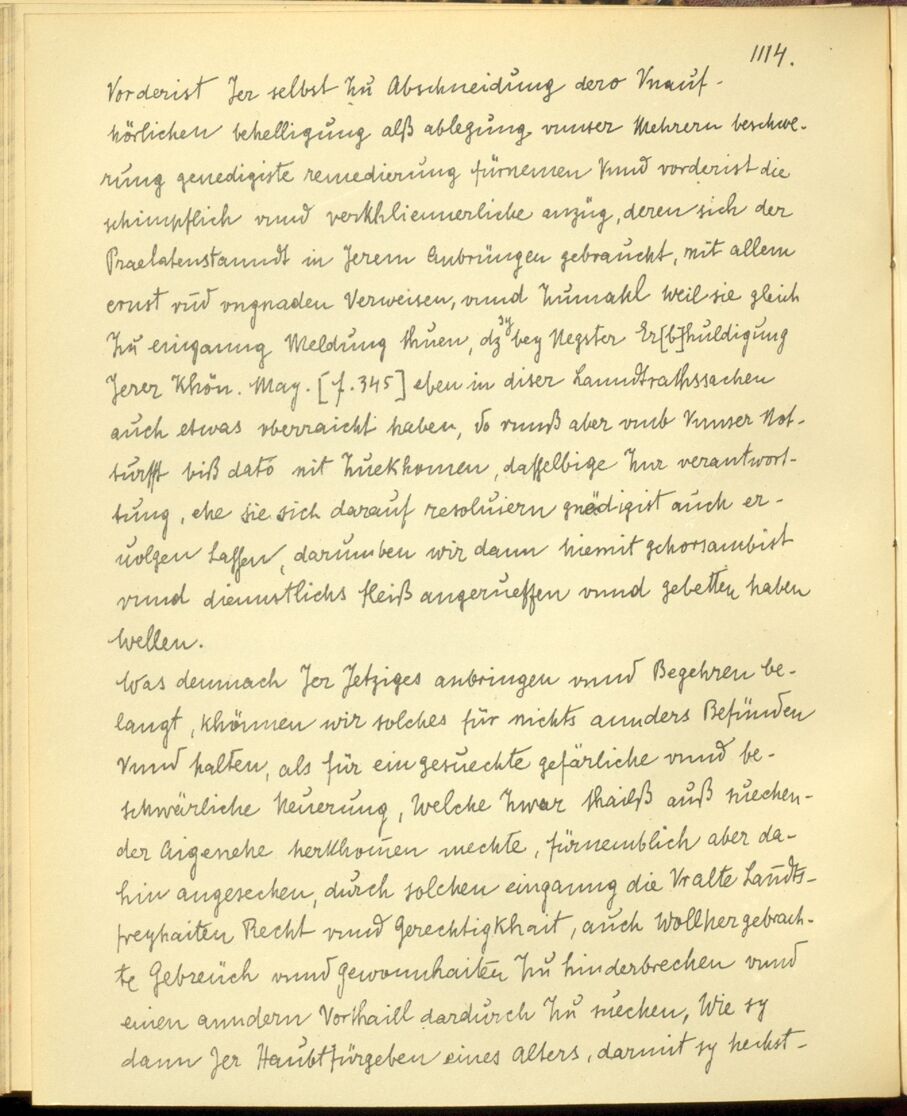 1114.
Vorderist Jer selbst zu Abschneidung dero Vnauf-
hörlichen behelligung alß ablegung vnnser Mehrern beschwe-
rung genedigiste remedierung fürnemen Vnnd vorderist die
schimpflich vnnd verkhliennerliche anzüg, deren sich der
Praelatenstanndt in Jerem Anbrüngen gebraucht, mit allem
ernst vn̄d vngnaden Verweisen, vnnd Zumahl weil sie gleich
Zu eingannng Meldung thuen, dz sy bey Negster Er[b]huldigung
Jerer Khön. May. [f. 345] eben in diser Lanndtrathssachen
auch etwas vberraicht haben, so vnnß aber vmb Vnnser Not-
turfft biß dato nit Zuekhomen, dasselbige Zur verantwort-
tung, ehe sie sich darauf resoluiern gnädigist auch er-
uolgen Lassen, darumben wir dann hiemit gehorsambist
vnnd diennstlichs fleiß angerueffen vnnd gebetten haben
wellen.
Was demnach Jer Jetziges anbringen vnnd Begehren be-
langt, khönnen wir solches für nichts annders Befünden
Vnnd halten, als für ein gesuechte gefärliche vnnd be-
schwärliche Neuerung, Welche Zwar thailß auß suechen-
der Aigenehe herkhom̄en mechte, fürnemblich aber da-
hin angesechen, durch solchen eingannng die Vralte Lan̄dts-
freyhaiten Recht vnnd Gerechtigkhait, auch Wollhergebrach-
te Gebreüch vnnd Gewonnhaiten Zu hinderbrechen vnnd
einen anndern Vorthaill dardurch Zu suechen, Wie sy
dann Jer Haubtfürgeben eines Alters, darmit sy hechst-